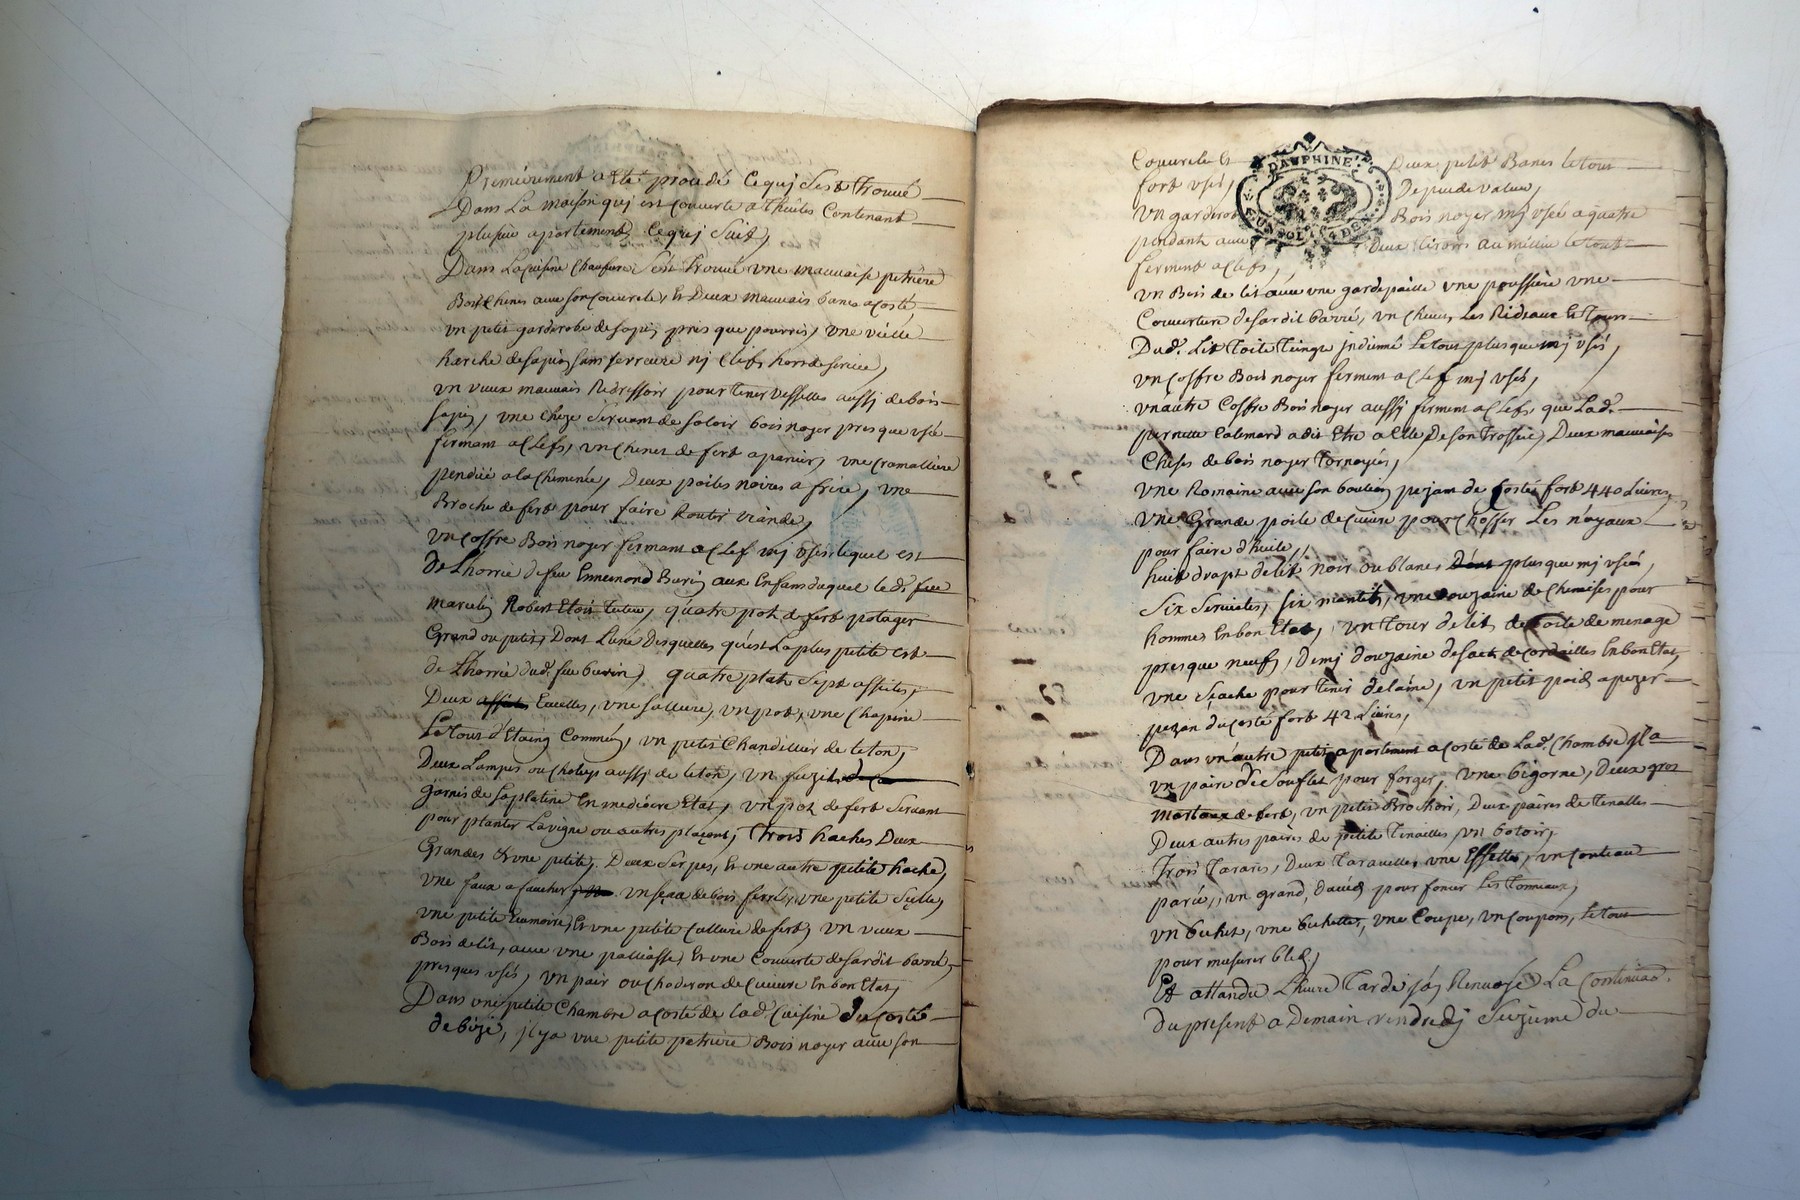 Premierement a été procedé Ce qui s'est trouvé
Dans La maison qui est couverte a thuiles Contenant
plusieurs apartements Ce qui suit,
Dans La cuisine Chaufure s'est trouvé une mauvaise petriere
Bois Chenes avec son Couvercle, Et Deux mauvais bancs a costé,
un petit garderobe de sapin presque pourris, une vielle
harche de sapin sans serreure nj Clefs hors de service,
un vieux mauvais Redressoir pour tenir vesselles aussj de bois
sapin, une cheze servant de saloir bois noyer presque usée
fermant a Clefs, un Chenet de ferd a panier, une cramalliere
pendüe a la Cheminée, Deux poiles noires a frire, une
Broche de ferd pour faire Routir viande,
un coffre Bois noyer fermant a Clef mj usés lequel est
de L'horrie de feu Ennemond Burin aux Enfans duquel le d. feu
marcelin Robert Etoit tuteur, quatre pot de ferd potager
Grand ou petit, Dont L'une Desquelles qu'est La plus petite est
de L'horrie dud. feu burin, quatre plats Sept assietes,
Deux Ecuelles, une saliere, un pot, une Chopine
Le tout d'Etaing Commun, un petit Chandillier de leton,
Deux Lampes ou Chaleys aussj de leton, un fuzil
garnis de sa platine En mediocre Etat, un pot de ferd servant
pour planter La vigne ou autres plaçons, Trois haches Deux
Grandes & une petite, Deux Serpes, Et une autre petite hache,
une faux a faucher un seau de bois ferré, une petite Seille,
une petite Ecumoire, Et une petite culliere de ferd, un vieux
Bois de lit, avec une palliasse, Et une Couverte de sardit barré,
presques usés, un pair ou Choderon de Cuivre En bon Etat,
Dans une petite Chambre a costé de lad. Cuisine du costé
de bize, il y a une petite petriere Bois noyer avec son
Couvercle Et Deux petit Bancs le tout
fort usés, De peu de valeur,
un garderobe Bois noyer mj usée a quatre
pendants avec Deux tiroirs au millieu le tout
ferment a Clefs,
DAUPHINE
un Bois de lit avec une garde paille une poussiere une
Couverture de sardit barré, un Chevet, Les Rideaux Et Tour
Dud. Lit Toile Teinte jndienne Le tout plus que mj usés,
un Coffre Bois noyer ferment a Clef mj usés,
un autre Coffre Bois noyer aussj ferment a Clefs, que Lad.
pernette Calemard a dit Etre a Elle De son Trossel, Deux mauvaises
Cheses de bois noyer Tornoyés,
une Romaine avec son boulion pezant de costé fort 440 Livres,
une Grande poile de Cuivre pour Choffer Les noyaux
pour faire d'huile,
huit drapt de lit noir ou blanc plus que mj usés,
Six Serviettes, six mantils, une Douzaine de Chemises pour
homme, En bon Etat, un Tour de lit de Toile de menage
presque neuf, Demj douzaine de sacts de cordailles En bon Etat,
une seache pour tenir de laine, un petit poids a pezer
pezan du costé fort 42 Livres,
Dans un autre petit apartement a costé de Lad. Chambre jl a
un paire de souflet pour forger, une bigorne, Deux gros
Marteaux de ferd, un petit Brochoir, Deux paires de Tenalles
Deux autres paires de petite Tenailles, un botoir,
Trois Tarairs, Deux Taravelles, une Essette, un Couteau
paroir, un grand, david pour foncer Les Tonneaux,
un bichet, une bichette, une Coupe, un Coupon, le tout
pour mesurer bled,
Et attandu L'heure Tarde j'ay Renvoyé La Continuaon.
du present a Demain vendredj Seizieme du